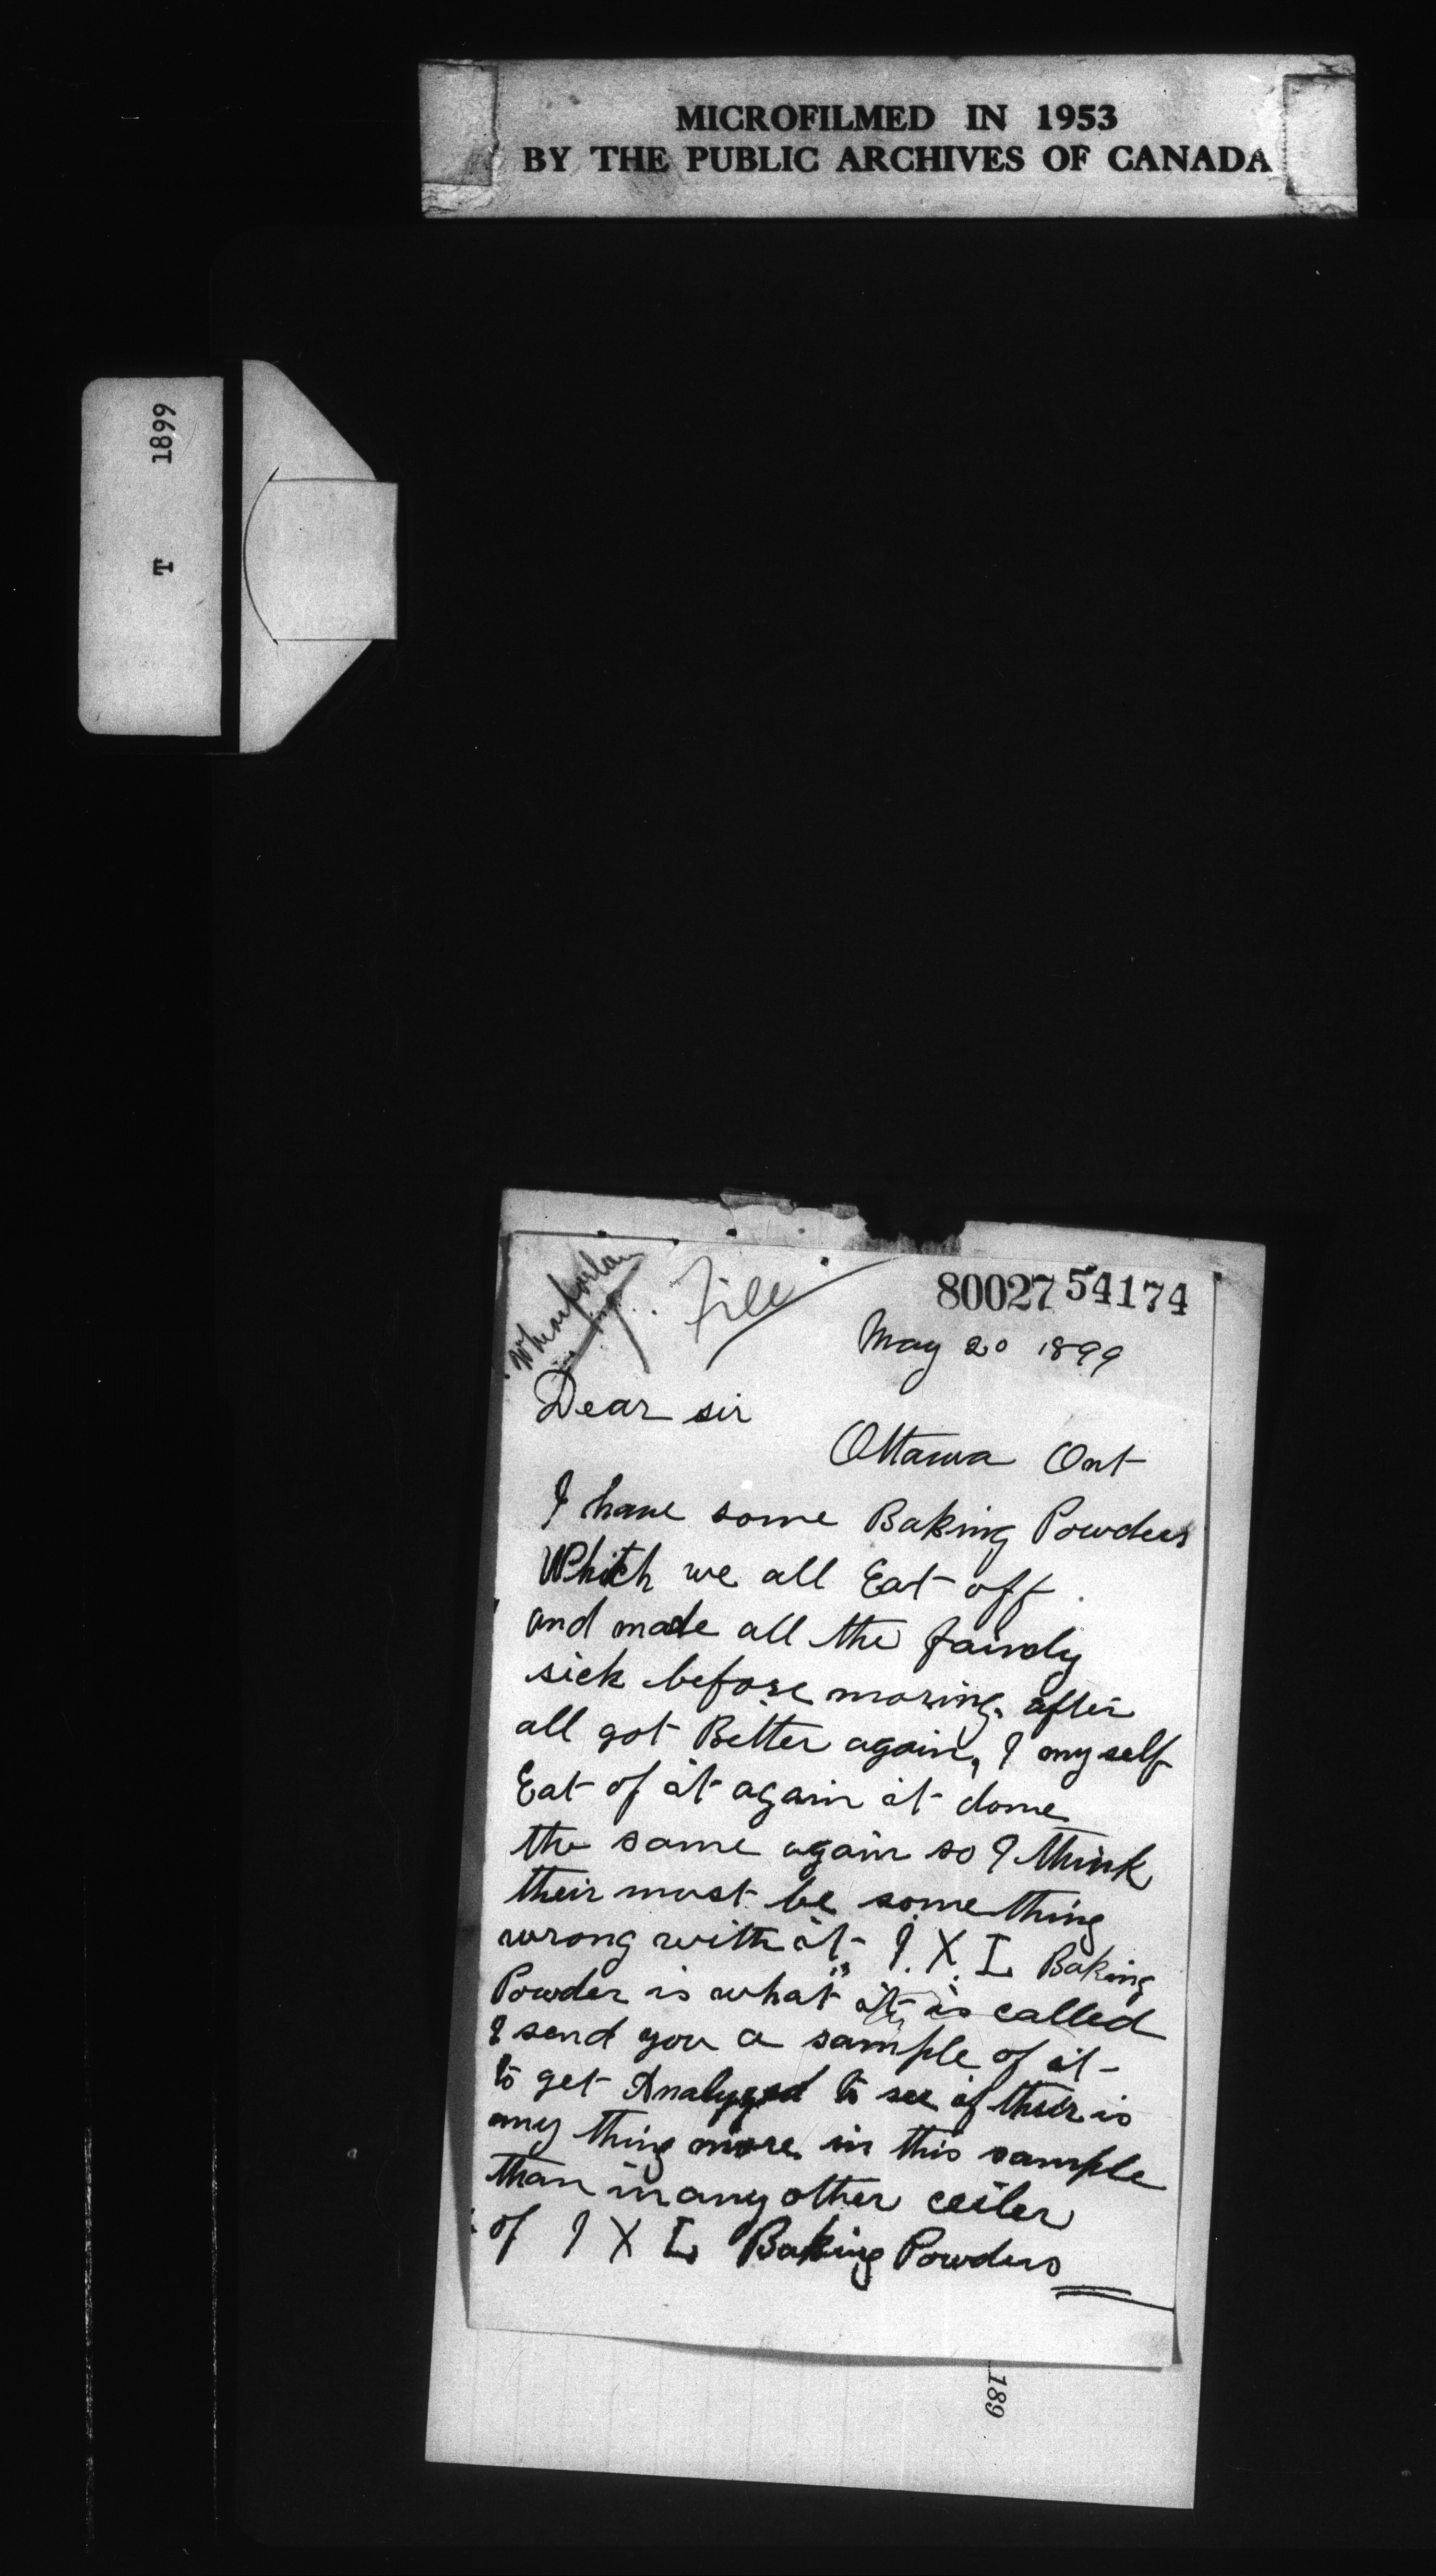 MICROFILMED IN 1953
BY THE PUBLIC ARCHIVES OF CANADA
T 1899
File
80027 54174
May 20 1899
Dear sir
Ottawa Ont
I have some Baking Powders
Which we all Eat off
and made all the faimly
sick before moring. after
all got Better again, I my self
Eat of it again it dome
the same again so I think
their must be some thing
wrong with it I. X. L Baking
Powder is what it is called
I send you a sample of it
to get Analyzed to see if their is
any thing more in this sample
than in any other
of I X L Baking Powders
189